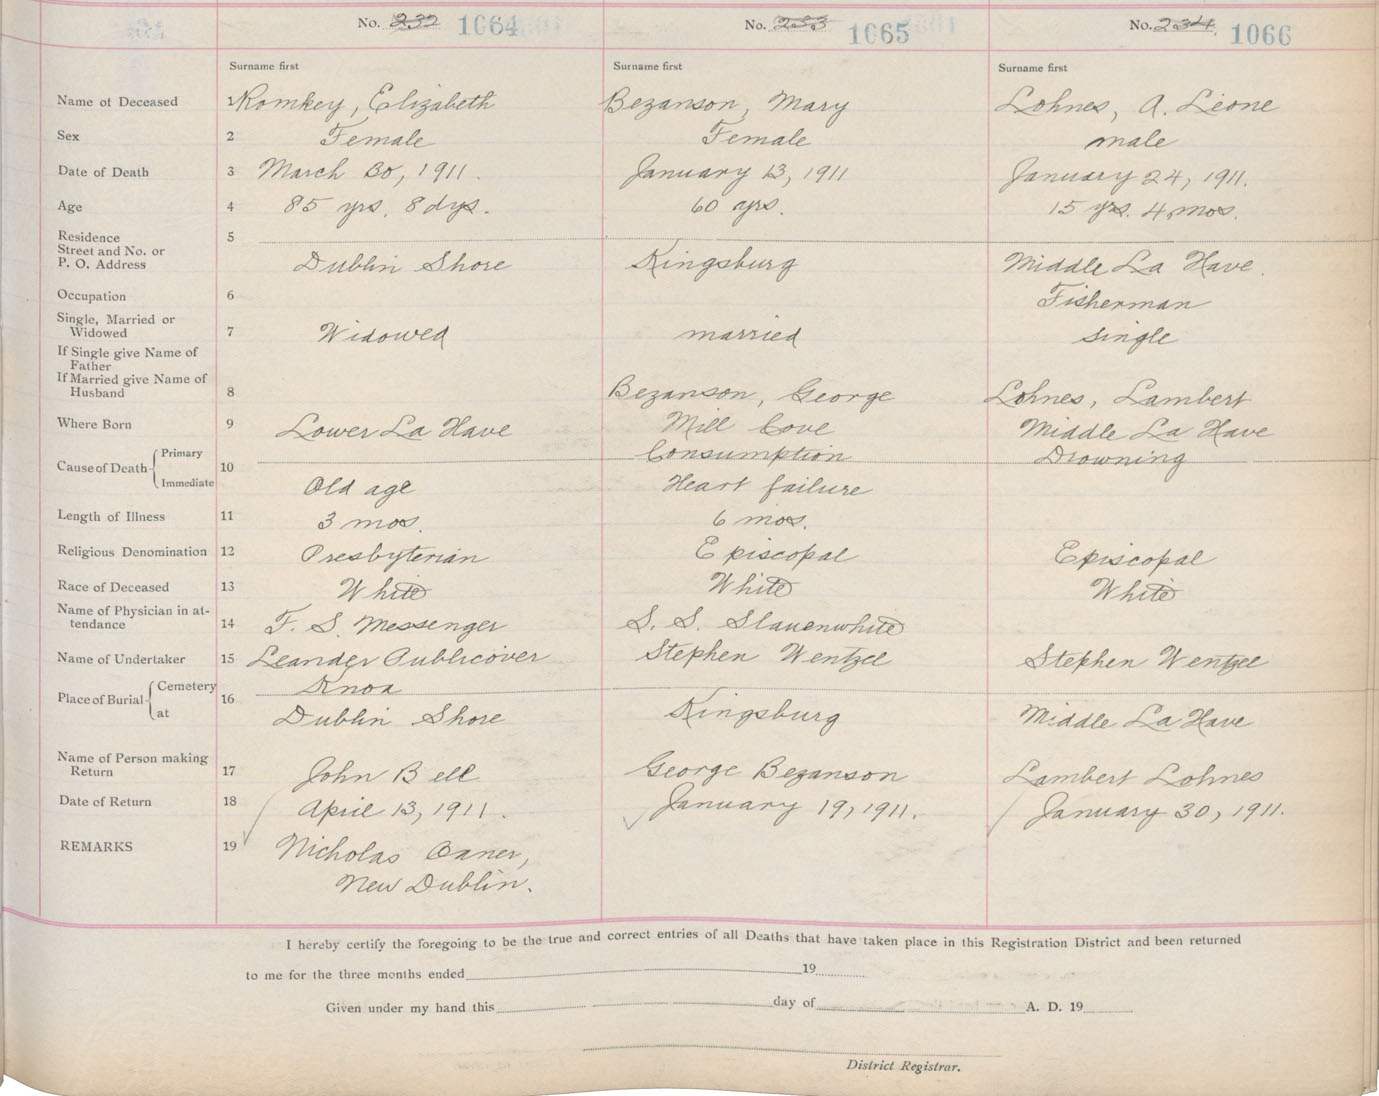 No. 232 1064 No. 233 1065 No. 234 1066
Surname first Surname first Surname first
Name of Deceased 1 Romkey, Elizabeth Bezanson, Mary Lohnes, A. Leone
Sex 2 Female Female male
Date of Death 3 March 30, 1911. January 13, 1911 January 24, 1911.
Age 4 85 yrs. 8 dys. 60 yrs. 15 yrs. 4 mos.
Residence 5
Street and No. or
P. O. Address Dublin Shore Kingsburg Middle La Have.
Occupation 6 Fisherman
Single, Married or
Widowed 7 Widowed married single
If Single give Name of
Father
If Married give Name of
Husband 8 Bezanson, George Lohnes, Lambert
Where Born 9 Lower La Have Mill Cove Middle La Have
Cause of Death 10 Primary Consumption Drowning
Immediate Old age Heart failure
Length of Illness 11 3 mos. 6 mos.
Religious Denomination 12 Presbyterian Episcopal Episcopal
Race of Deceased 13 White White White
Name of Physician in at-
tendance 14 F. S. Messenger S. S. Slauenwhite
Name of Undertaker 15 Leander Publicover Stephen Wentzel Stephen Wentzel
Place of Burial 16 Cemetery Knox
at Dublin Shore Kingsburg Middle La Have
Name of Person making
Return 17 John Bell George Bezanson Lambert Lohnes
Date of Return 18 April 13, 1911. January 19, 1911. January 30, 1911.
REMARKS 19 Nicholas Oxner,
New Dublin.
I hereby certify the foregoing to be the true and correct entries of all Deaths that have taken place in this Registration District and been returned
to me for the three months ended 19
Given under my hand this day of A. D. 19
District Registrar.